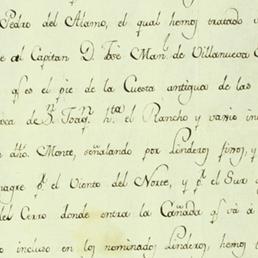 Pedro del Alamo, el qual hemos tratado
al Capitan D. José Man.l de Villanueva
q.e es el pie de la Cuesta antigua de las
de S.n Joaq.n h.ta el Rancho y varios
dho. Monte, señalando por Linderos fixos, y
q.r el Viento del Norte, y p.r el Sur
del Cerro donde entra la Cañada q.e vá á
incluso en los nominados Linderos, hemos